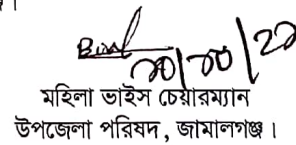 ২০/১০/২২
মহিলা ভাইস চেয়ারম্যান
উপজেলা পরিষদ, জামালগঞ্জ।